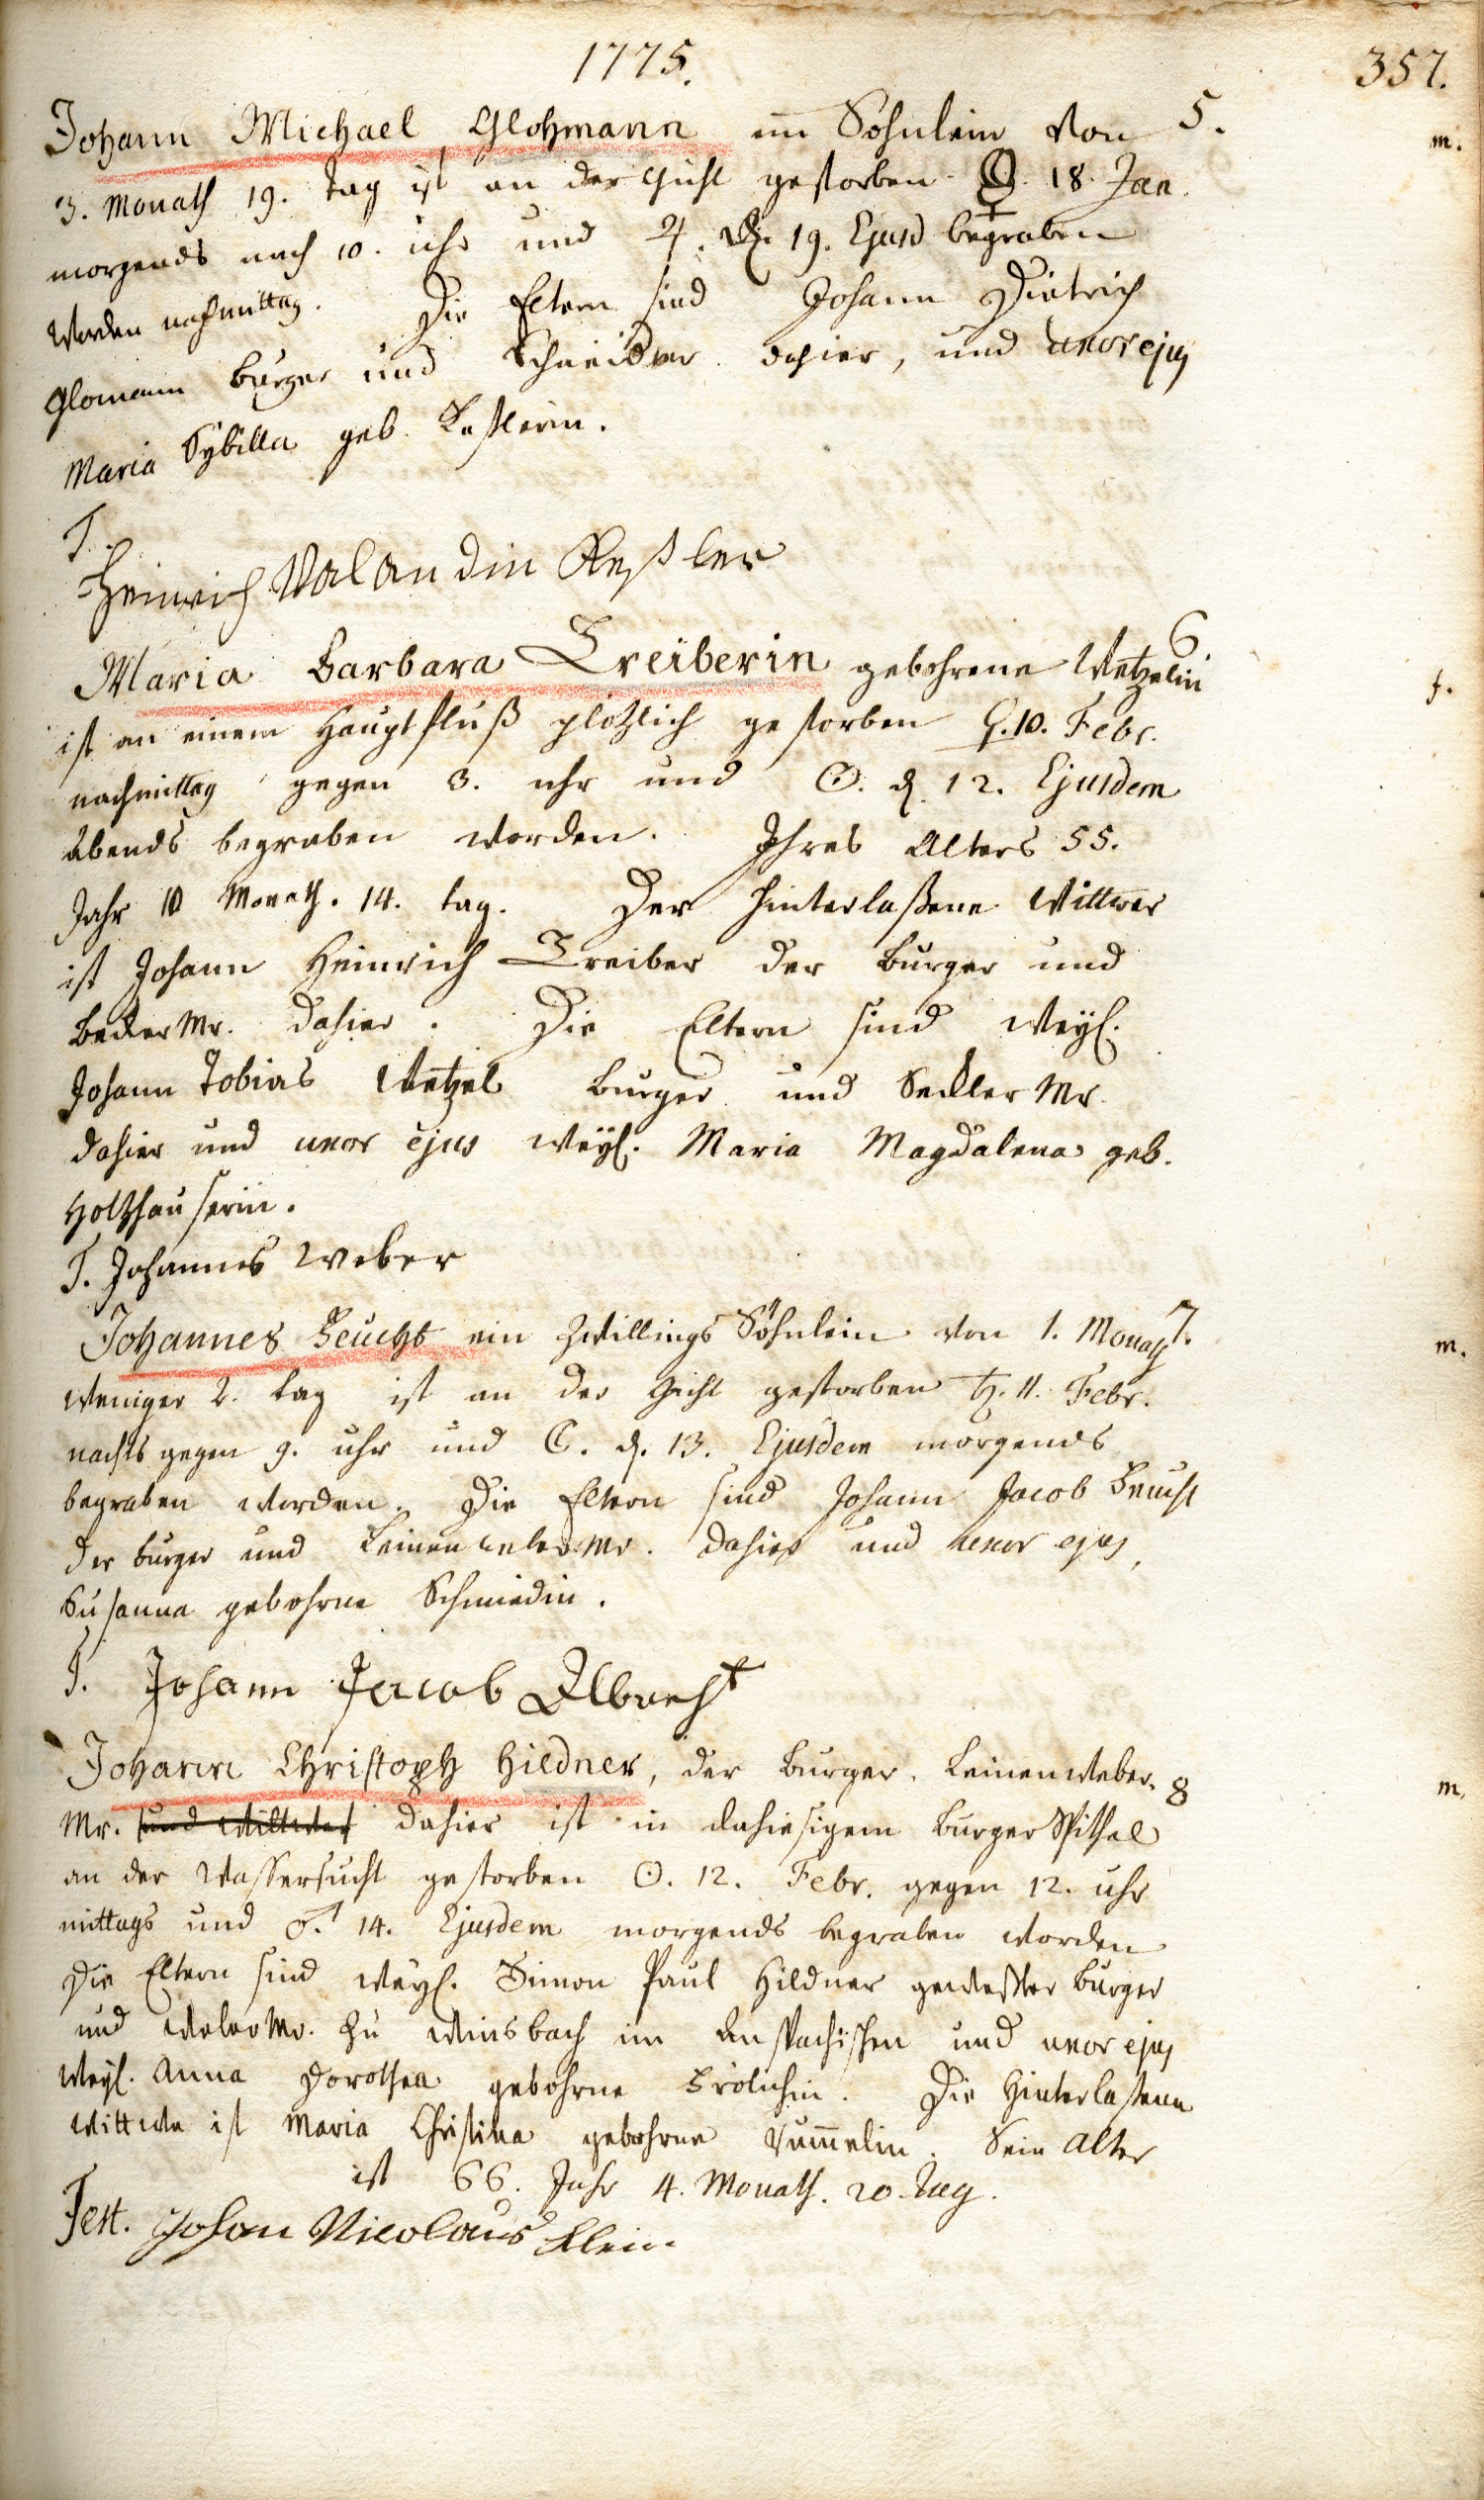 1775.
357.
Johann Michael Glohmann ein Söhnlein von 5.
m.
3. Monath 19. tag ist an der Gicht gestorben ☿. 18. Jan.
morgends nach 10. uhr und ♃. d. 19. Ejusd begraben
worden nachmittag. Die Eltern sind Johann Dietrich
Glomann burger und Schneider dahier, und uxor ejus
Maria Sybilla geb. Keßlerin.
T.
Heinrich Valandin Keßler
6
Maria Barbara Treiberin gebohrene Wetzelin
f.
ist an einem Hauptfluß plötzlich gestorben ♀. 10. Febr.
nachmittag gegen 3. uhr und ☉. d. 12. Ejusdem
Abends begraben worden. Ihres Alters 55.
Jahr 10 Monath. 14. tag. Der hinterlaßene Wittwer
ist Johann Heinrich Treiber der burger und
becker Mr. dahier. Die Eltern sind weyl.
Johann Tobias Wetzel burger und Seckler Mr.
dahier und uxor ejus weyl. Maria Magdalena geb.
Holtzhauserin.
T. Johannes Weber
Johannes Leucht ein Zwillings Söhnlein von 1. Monath 7.
m.
weniger 2. tag ist an der Gicht gestorben ♄. 11. Febr.
nachts gegen 9. uhr und ☾. d. 13. Ejusdem morgends
begraben worden. Die Eltern sind Johann Jacob Leucht
der burger und Leinenweber Mr. dahier und uxor ejus,
Susanna gebohrne Schmiedin.
T. Johann Jacob Albrecht
Johann Christoph Hildner, der burger. Leinenweber. 8
m.
Mr. und Wittwer dahier ist in dahiesigem burger Spithal
an der Wassersucht gestorben ☉. 12. Febr. gegen 12. uhr
mittags und ♂. 14. Ejusdem morgends begraben worden
Die Eltern sind weyl. Simon Paul Hildner geweßter burger
und weber Mr. zu Winsbach im Anspachischen und uxor ejus
weyl. Anna Dorothea gebohrne Frölichin. Die Hinterlaßene
Wittwe ist Maria Christina gebohrne Rum̄elin. Sein Alter
ist 66. Jahr 4. Monath. 20. tag.
Test. Johan Nicolaus Klein